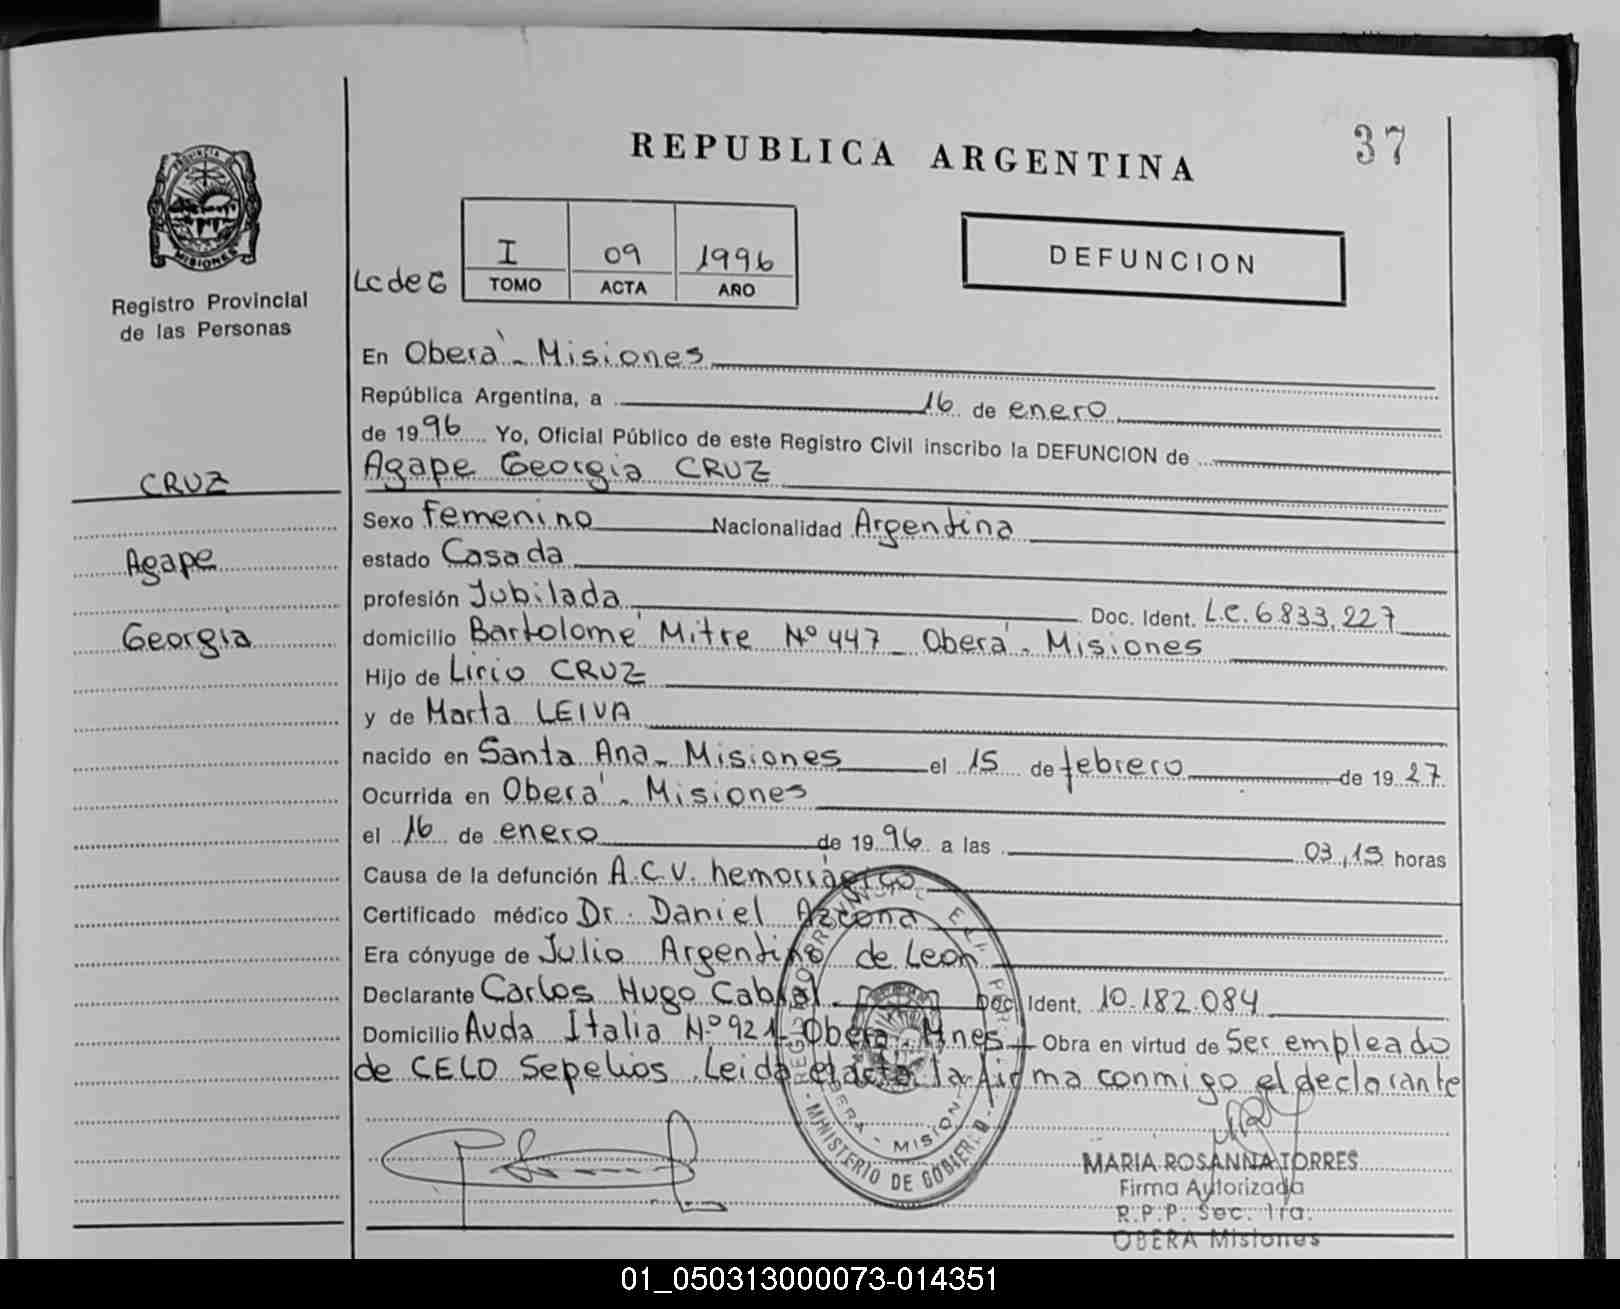 37
REPUBLICA ARGENTINA
PROVINCIA DE
MISIONES
Registro Provincial
de las Personas
LcdeG
I 09 1996
TOMO ACTA AÑO
DEFUNCION
En Oberá - Misiones
República Argentina, a 16 de enero
de 1996 Yo, Oficial Público de este Registro Civil inscribo la DEFUNCION de
Agape Georgia CRUZ
CRUZ
Agape
Georgia
Sexo Femenino Nacionalidad Argentina
estado Casada
profesión Jubilada Doc. Ident. L.C. 6.833.227
domicilio Bartolomé Mitre Nº 447 - Oberá - Misiones
Hijo de Lirio CRUZ
y de Marta LEIVA
nacido en Santa Ana - Misiones el 15 de febrero de 1927
Ocurrida en Oberá - Misiones
el 16 de enero de 1996 a las 03,15 horas
Causa de la defunción A.C.V. hemorrágico
Certificado médico Dr. Daniel Azcona
Era cónyuge de Julio Argentino de Leon
Declarante Carlos Hugo Cabral Doc. Ident. 10.182.084
Domicilio Avda Italia Nº 921 - Oberá - Mnes Obra en virtud de Ser empleado
de CELO Sepelios. Leida el acta la firma conmigo el declarante
REGISTRO PROVINCIAL DE LAS PER
OBERA - MISION
- MINISTERIO DE GOBIERNO -
MARIA ROSANNA TORRES
Firma Autorizada
R.P.P. Sec. 1ra.
OBERA Misiones
01_050313000073-014351